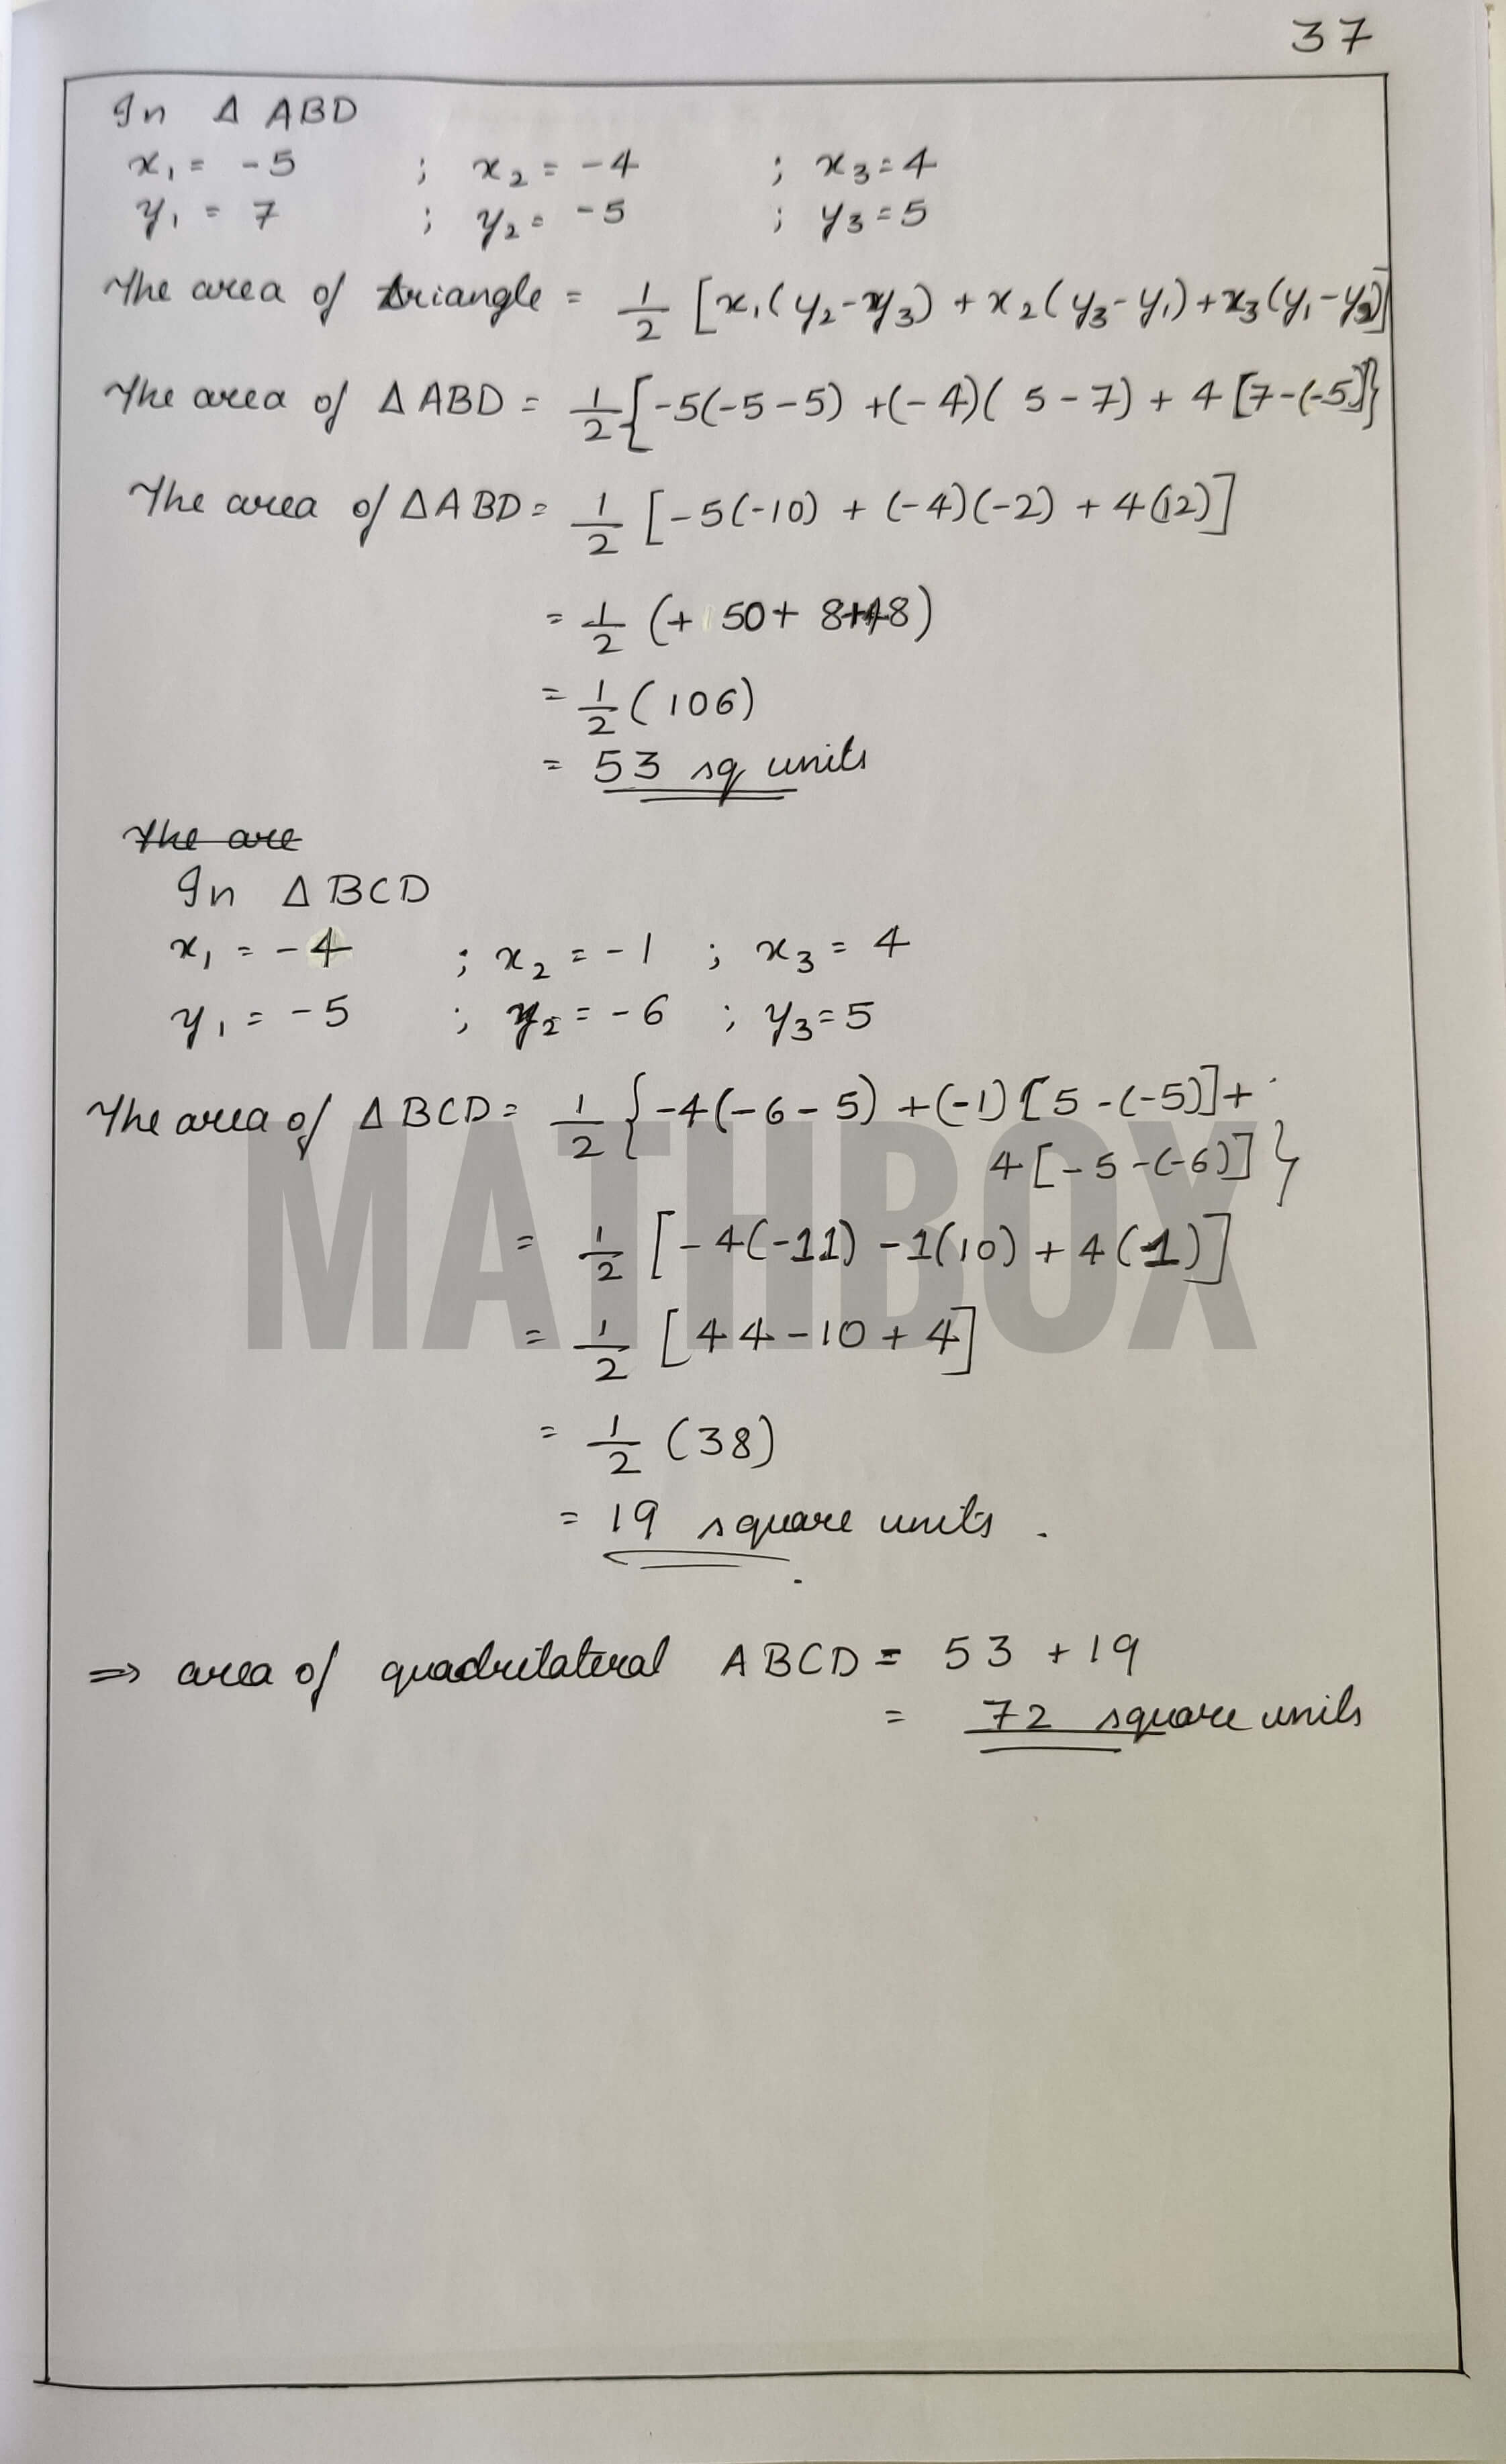 37
In Δ ABD
x₁ = -5 ; x₂ = -4 ; x₃ = 4
y₁ = 7 ; y₂ = -5 ; y₃ = 5
The area of triangle = 1/2 [x₁(y₂-y₃) + x₂(y₃-y₁)+x₃(y₁-y₂)]
The area of Δ ABD = 1/2 {-5(-5-5) +(-4)( 5-7) + 4 [7-(-5)]}
The area of Δ ABD = 1/2 [-5(-10) + (-4)(-2) + 4(12)]
= 1/2 (+ 50+ 8+48)
= 1/2 (106)
= 53 sq units
The are
In Δ BCD
x₁ = -4 ; x₂ = -1 ; x₃ = 4
y₁ = -5 ; y₂ = -6 ; y₃ = 5
The area of Δ BCD = 1/2 {-4(-6-5) +(-1) [5-(-5)]+
4[-5-(-6)]}
= 1/2 [-4(-11) -1(10) + 4(1)]
= 1/2 [44-10+4]
= 1/2 (38)
= 19 square units.
⇒ area of quadrilateral ABCD = 53 + 19
= 72 square units
MATHBOX